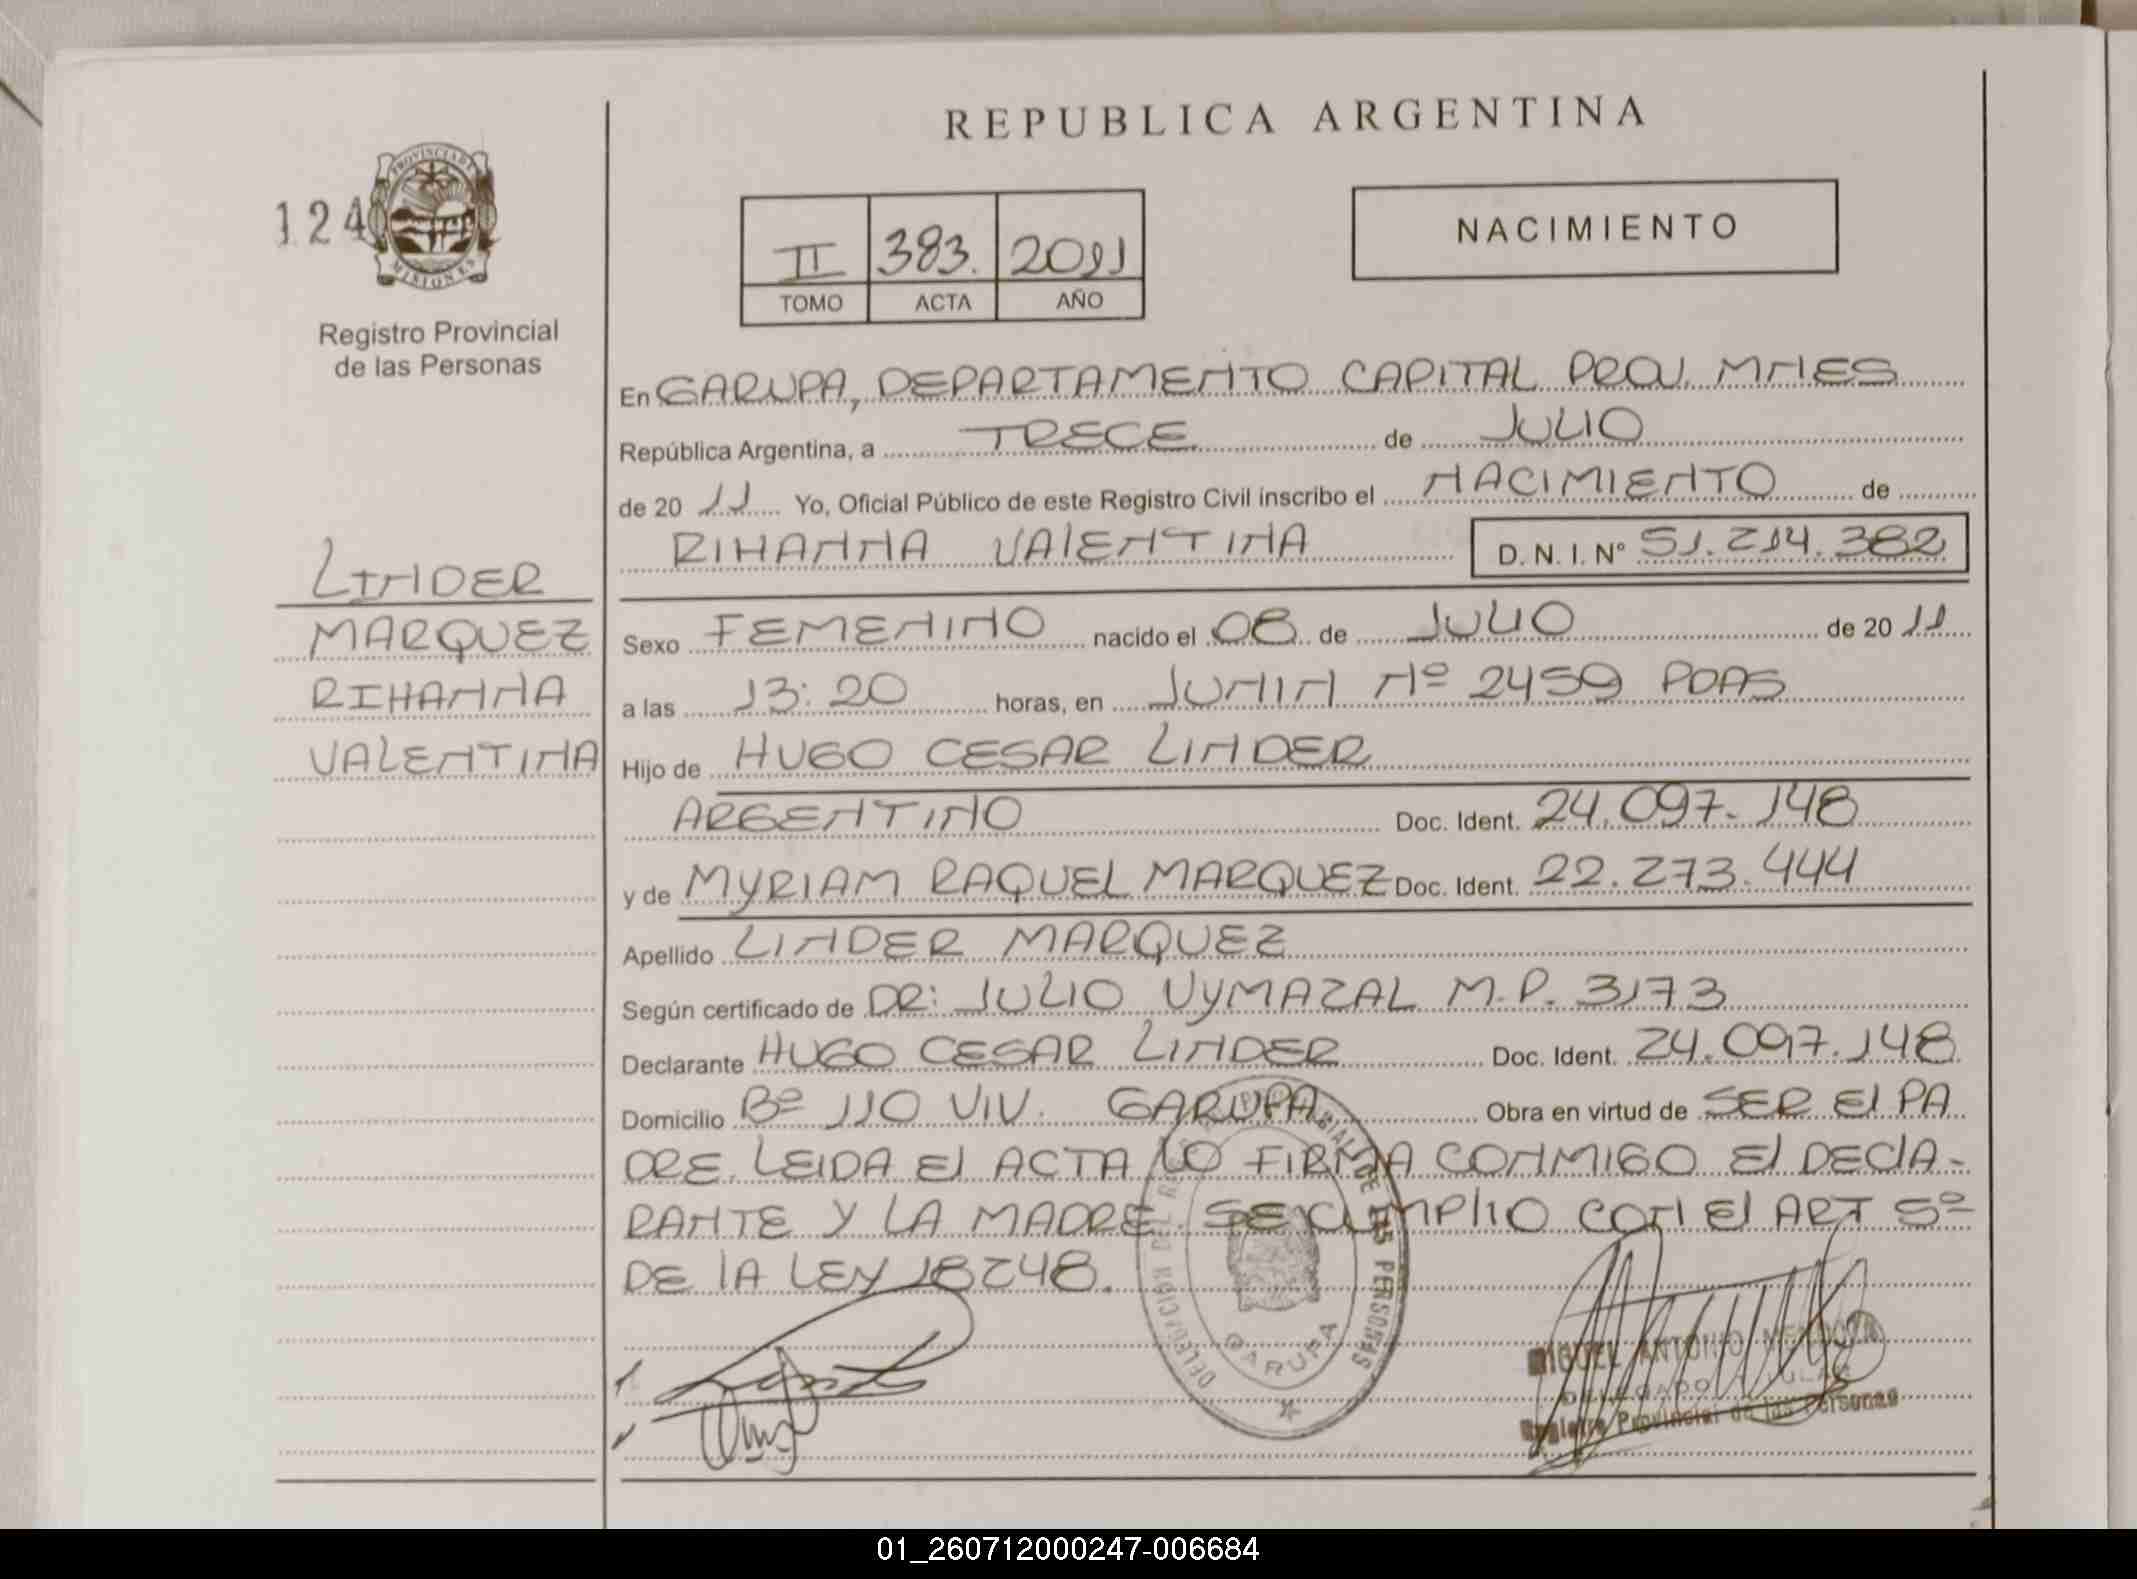 REPUBLICA ARGENTINA
124
PROVINCIA DE
MISIONES
Registro Provincial
de las Personas
II 383. 2011
TOMO ACTA AÑO
NACIMIENTO
En GARUPA, DEPARTAMENTO CAPITAL PROV. MNES
República Argentina, a TRECE de JULIO
de 20 11 Yo, Oficial Público de este Registro Civil inscribo el NACIMIENTO de
RIHANNA VALENTINA D. N. I. N° 51.214.382
LINDER
MARQUEZ
RIHANNA
VALENTINA
Sexo FEMENINO nacido el 08 de JULIO de 20 11
a las 13:20 horas, en JUNIN Nº 2459 PDAS
Hijo de HUGO CESAR LINDER
ARGENTINO Doc. Ident. 24.097.148
y de MYRIAM RAQUEL MARQUEZ Doc. Ident. 22.273.444
Apellido LINDER MARQUEZ
Según certificado de DR: JULIO VYMAZAL M.P. 3173
Declarante HUGO CESAR LINDER Doc. Ident. 24.097.148
Domicilio Bº 110 VIV. GARUPA Obra en virtud de SER El PA
DRE. LEIDA El ACTA LO FIRMA CONMIGO El DEClA-
RANTE Y LA MADRE. SE CUMPlIO CON El ART 5º
DE lA LEY 18248.
DELEGACION DEL PROVINCIAL DE LAS PERSONAS
GARUPA
MIGUEL ANTONIO MENDOZA
DELEGADO TITULAR
Registro Provincial de las Personas
01_260712000247-006684